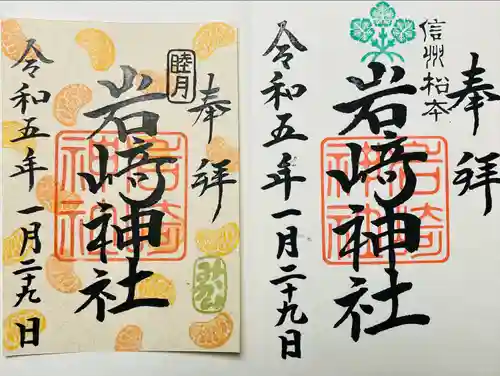 信州松本
奉拝
岩崎神社
岩崎神社
令和五年一月二十九日
奉拝
睦月
岩崎神社
岩崎神社
令和五年一月二十九日